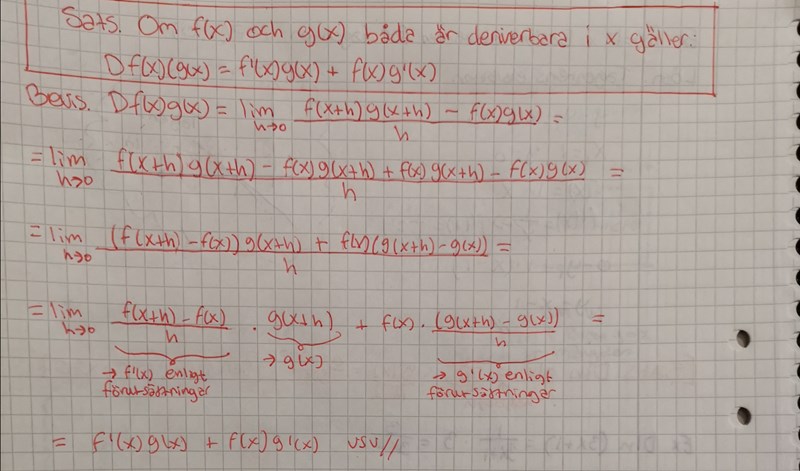 Sats. Om f(x) och g(x) båda är deriverbara i x gäller:
Df(x)(g(x) = f'(x)g(x) + f(x)g'(x)
Bevis. Df(x)g(x) = lim h→0 (f(x+h)g(x+h) - f(x)g(x))/h =
= lim h→0 (f(x+h)g(x+h) - f(x)g(x+h) + f(x)g(x+h) - f(x)g(x))/h =
= lim h→0 ((f(x+h) - f(x))g(x+h) + f(x)(g(x+h) - g(x)))/h =
= lim h→0 (f(x+h) - f(x))/h · g(x+h) + f(x) · (g(x+h) - g(x))/h =
→ f'(x) enligt förutsättningar
→ g(x)
→ g'(x) enligt förutsättningar
= f'(x)g(x) + f(x)g'(x) vsv//